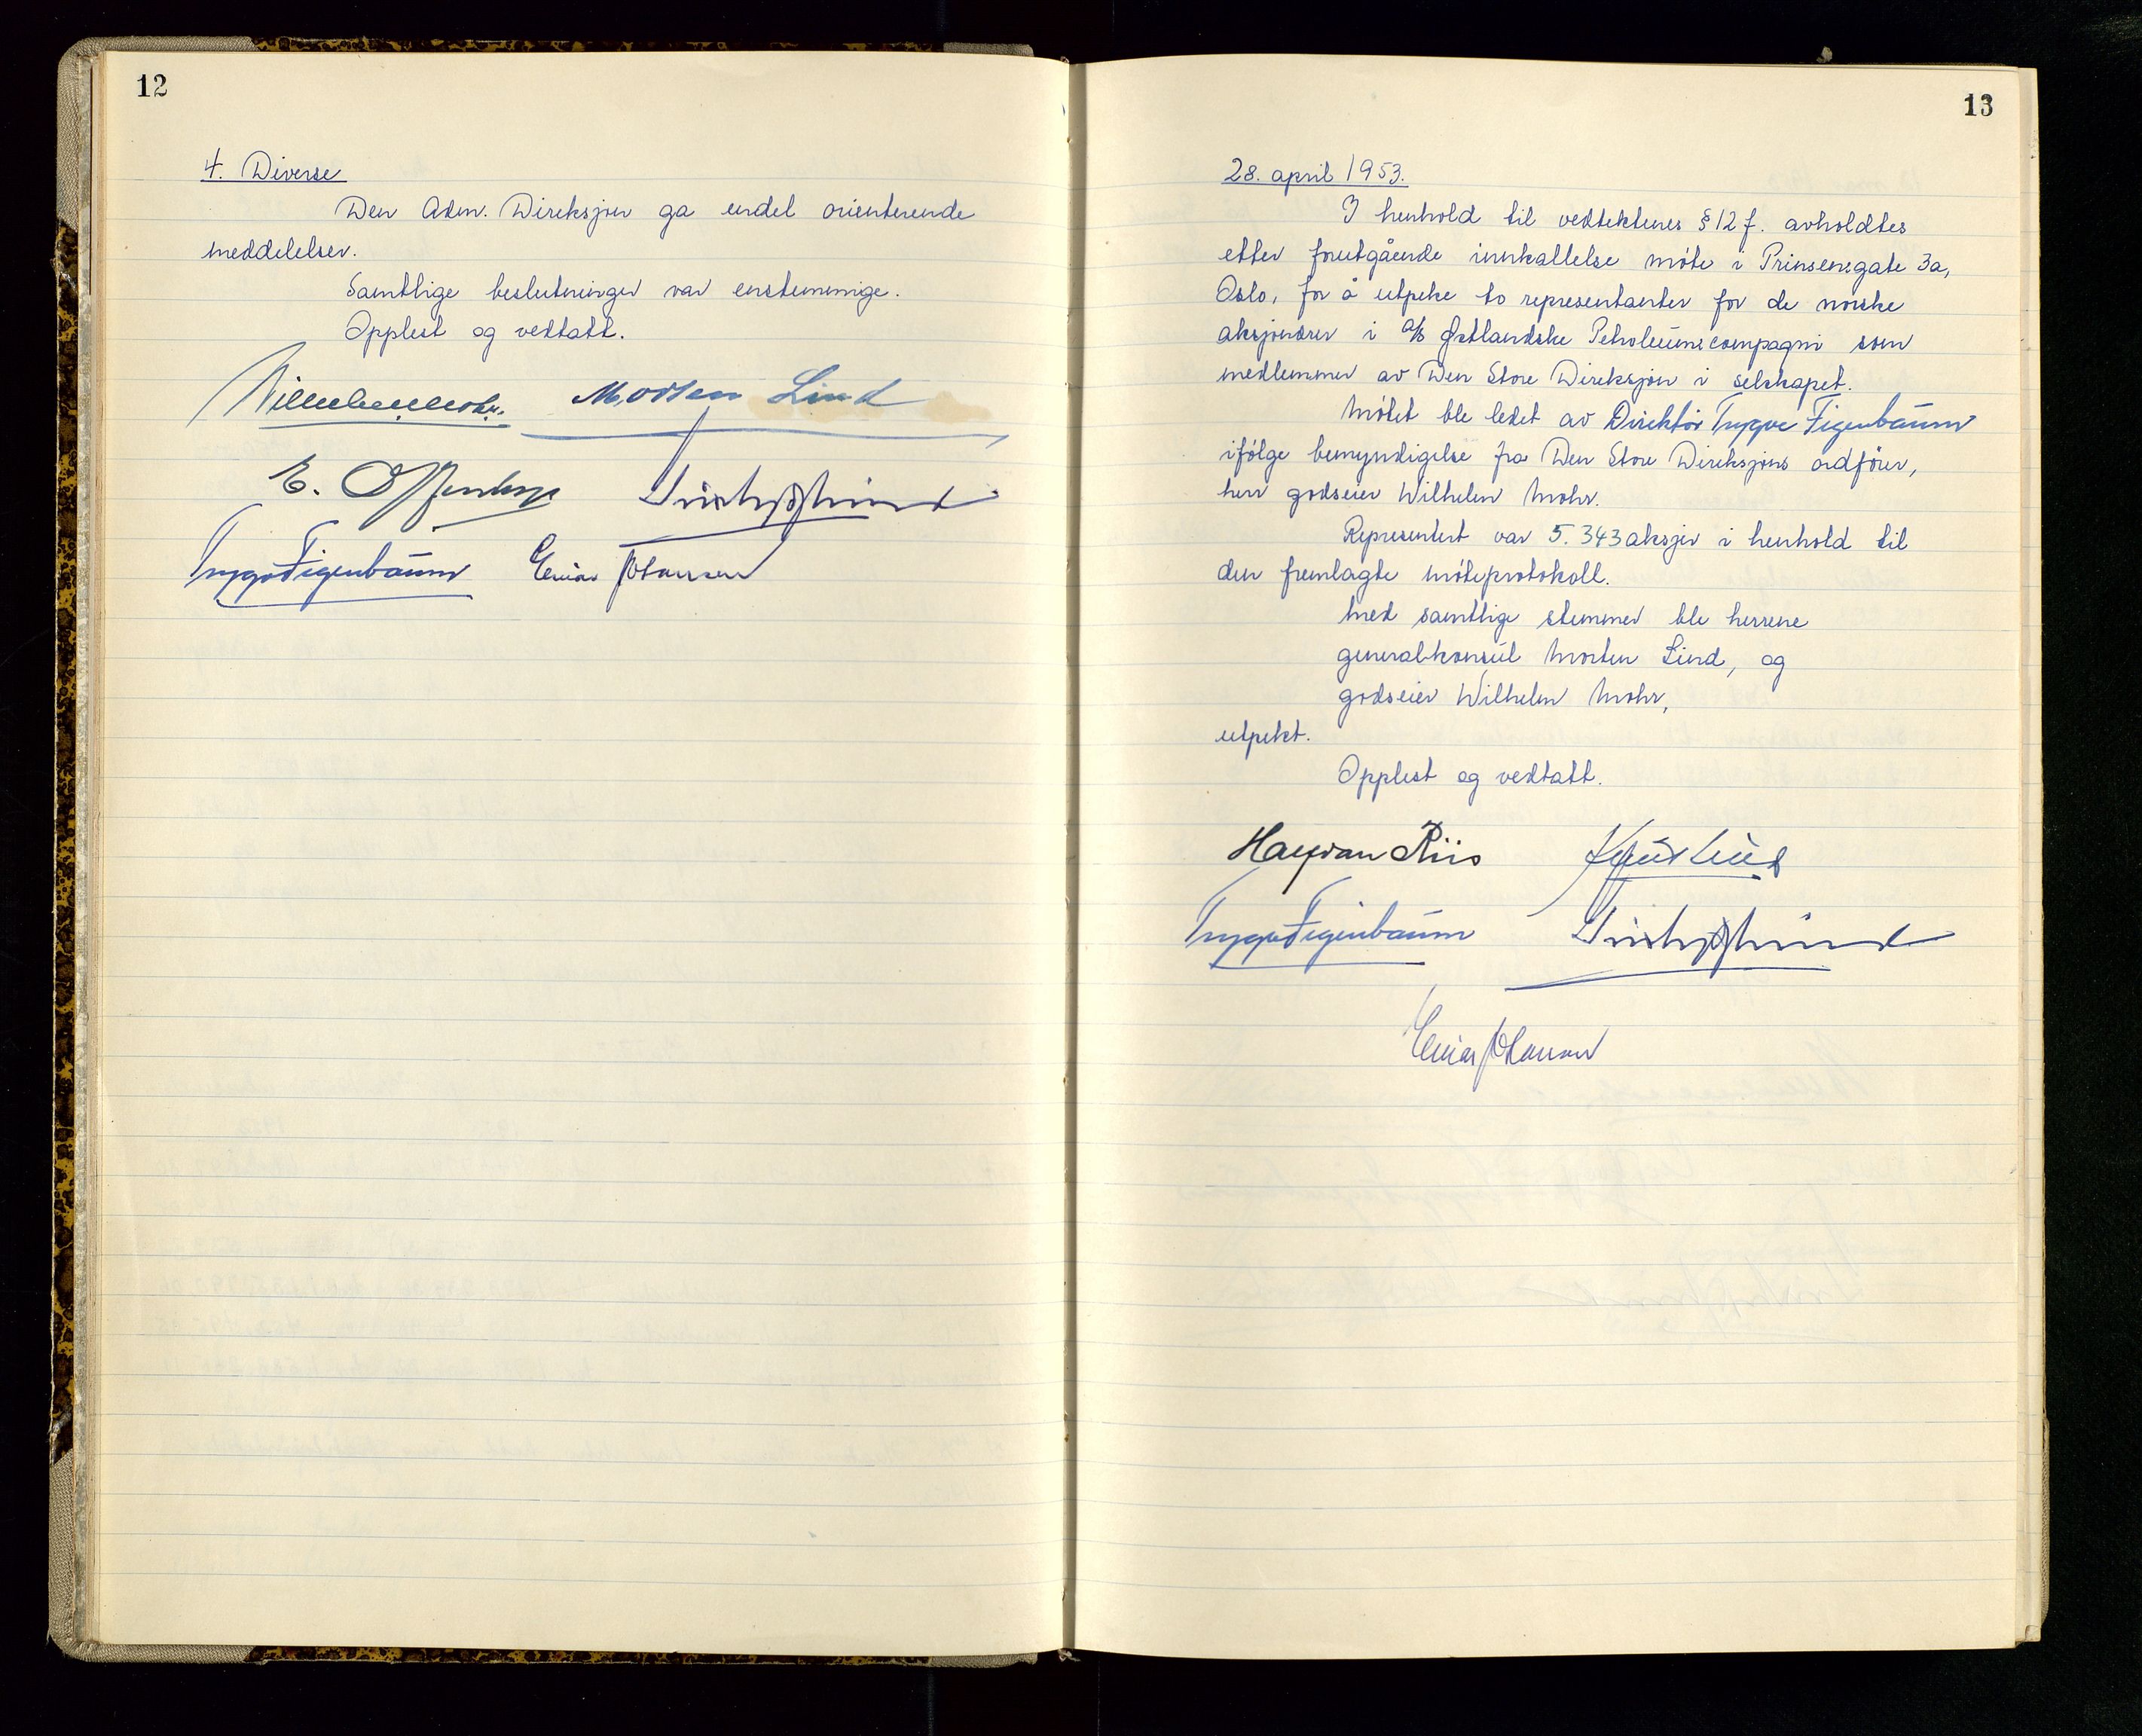 12
4. Diverse
Den Adm. Direksjon ga endel orienterende
meddelelser.
Samtlige beslutninger var enstemmige.
Opplest og vedtatt.
Morten Lind
Trygve Figenbaum Einar Johansen
13
28. april 1953.
I henhold til vedtektenes § 12 f. avholdtes
etter forutgående innkallelse møte i Prinsensgate 3a,
Oslo, for å utpeke to representanter for de norske
aksjonærer i A/S Østlandske Petroleumscompagni som
medlemmer av Den Store Direksjon i selskapet.
Møtet ble ledet av Direktør Trygve Figenbaum
ifølge bemyndigelse fra Den Store Direksjons ordfører,
herr godseier Wilhelm Mohr.
Representert var 5.343 aksjer i henhold til
den fremlagte møteprotokoll.
Med samtlige stemmer ble herrene
generalkonsul Morten Lind, og
godseier Wilhelm Mohr,
utpekt.
Opplest og vedtatt.
Halfdan Riis
Trygve Figenbaum
Einar Johansen